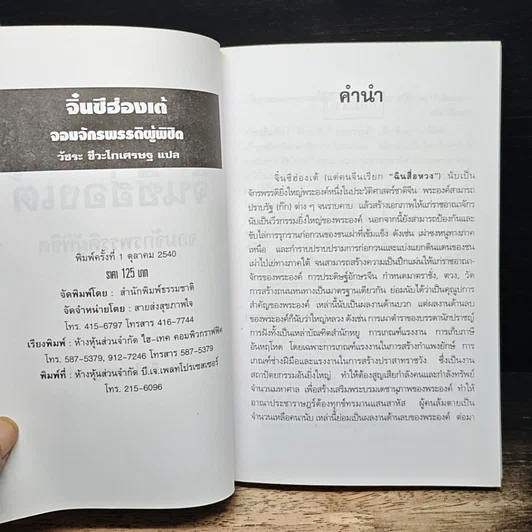 จิ๋นซีฮ่องเต้
จอมจักรพรรดิผู้พิชิต
วัชระ ชีวะโกเศรษฐ แปล
พิมพ์ครั้งที่ 1 ตุลาคม 2540
ราคา 125 บาท
จัดพิมพ์โดย : สำนักพิมพ์ธรรมชาติ
จัดจำหน่ายโดย : สายส่งสุขภาพใจ
โทร. 415-6797 โทรสาร 416-7744
เรียงพิมพ์ : ห้างหุ้นส่วนจำกัด ไฮ-เทค คอมพิวกราฟฟิค
โทร. 587-5379, 912-7246 โทรสาร 587-5379
พิมพ์ที่ : ห้างหุ้นส่วนจำกัด บี.เจ.เพลทโปรเซสเซอร์
โทร. 215-6096
คำนำ
จิ๋นซีฮ่องเต้ (แต่คนจีนเรียก "ฉินสื่อหวง") นับเป็น
จักรพรรดิยิ่งใหญ่พระองค์หนึ่งในประวัติศาสตร์ชาติจีน พระองค์สามารถ
ปราบรัฐ (ก๊ก) ต่าง ๆ จนราบคาบ แล้วสร้างเอกภาพให้แก่ราชอาณาจักร
นับเป็นวีรกรรมยิ่งใหญ่ของพระองค์ นอกจากนี้ยังสามารถป้องกันและ
ขับไล่การรุกรานก่อกวนของชนเผ่าที่เข้มแข็ง ดังเช่น เผ่าซงหนูทางภาค
เหนือ และกำราบปราบปรามการก่อกวนและแบ่งแยกดินแดนของชน
เผ่าไป่เย่ทางภาคใต้ จนสามารถสร้างความเป็นปึกแผ่นให้แก่ราชอาณา
จักรของพระองค์ การประดิษฐ์อักษรจีน กำหนดมาตราชั่ง, ตวง, วัด
การสร้างถนนหนทางเป็นมาตรฐานเดียวกัน ย่อมนับได้ว่าเป็นคุณูปการ
สำคัญของพระองค์ เหล่านี้นับเป็นผลงานด้านบวก แต่ผลงานด้านลบ
ของพระองค์ก็นับว่าใหญ่หลวง ดังเช่น การเผาตำราของบรรดานักปราชญ์
การฝังทั้งเป็นเหล่าบัณฑิตสำนักหยู การเกณฑ์แรงงาน การเก็บภาษี
อันหฤโหด โดยเฉพาะการเกณฑ์แรงงานในการสร้างกำแพงยักษ์ การ
เกณฑ์ช่างฝีมือและแรงงานในการสร้างปราสาทราชวัง ซึ่งเป็นงาน
สถาปัตยกรรมอันยิ่งใหญ่ ทำให้ต้องสูญเสียกำลังคนและกำลังทรัพย์
จำนวนมหาศาล เพื่อสร้างเสริมพระบรมเดชานุภาพของพระองค์ ทำให้
อาณาประชาราษฎร์ต้องทุกข์ทรมานแสนสาหัส ผู้คนล้มตายเป็น
จำนวนเหลือคณานับ เหล่านี้ย่อมเป็นผลงานด้านลบของพระองค์ ต่อมา